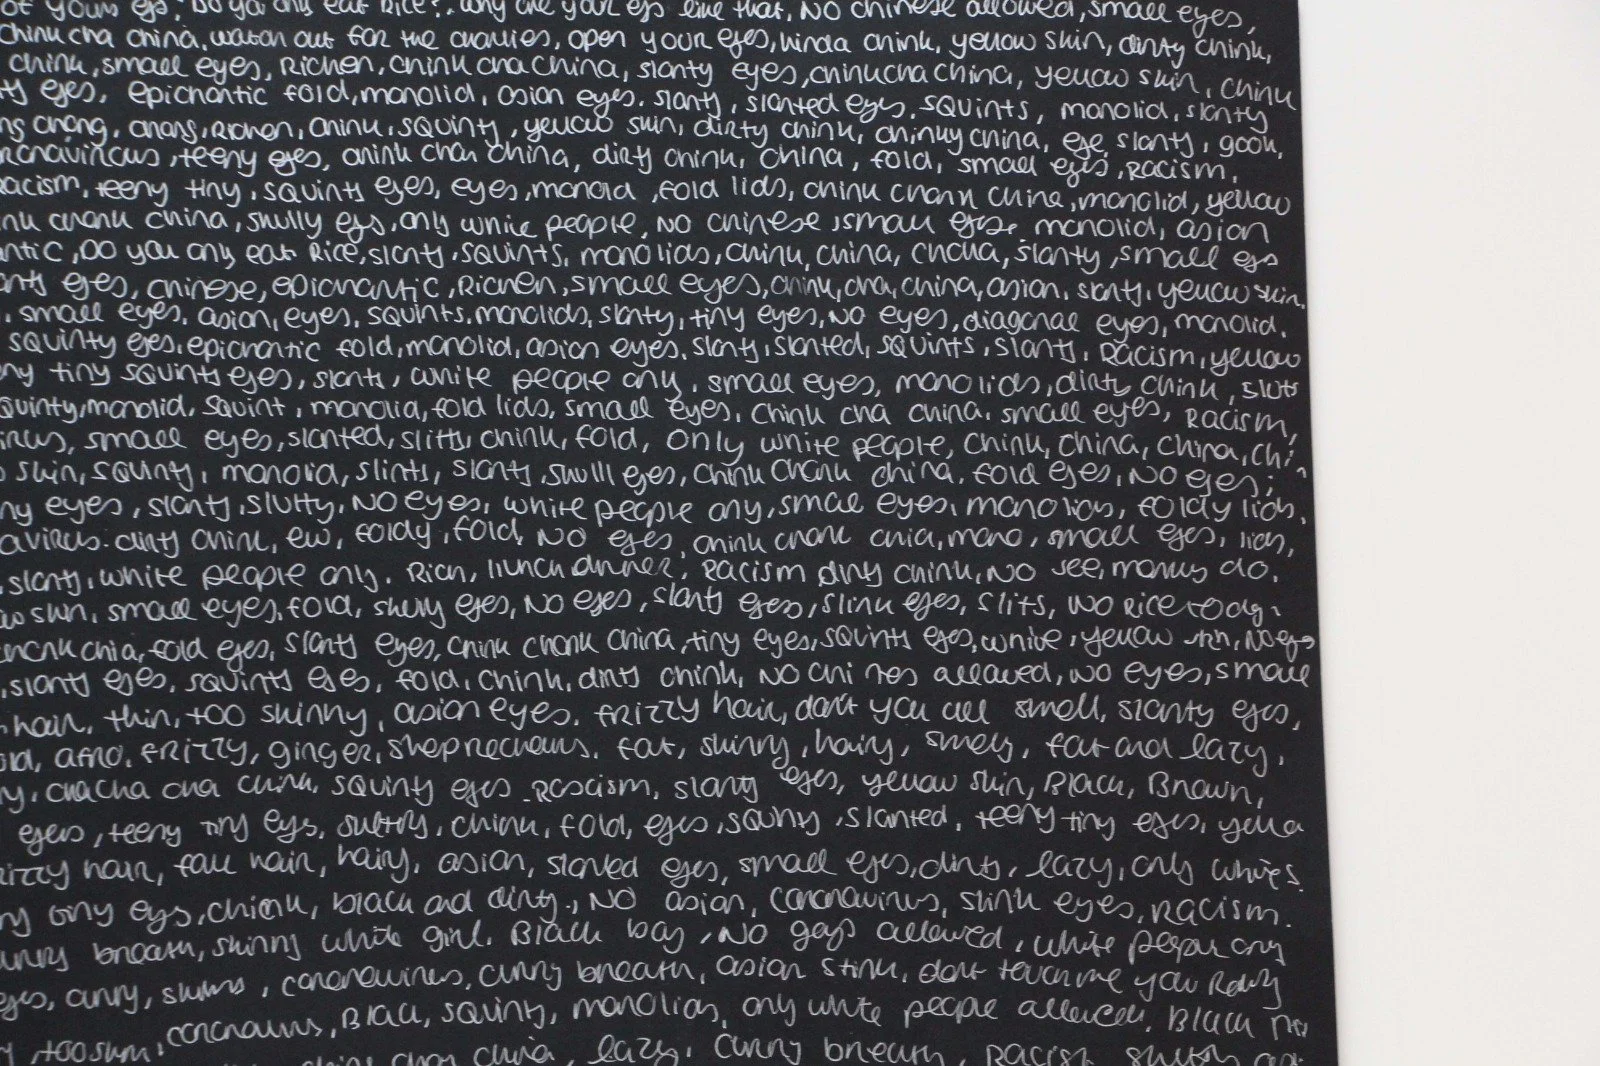 of yours eyes, Do you only eat Rice?. why are your eyes like that, NO chinese allowed, small eyes,
chink cha china, watch out for the chinkies, open your eyes, kinda chink, yellow skin, dirty chink,
chink, small eyes, Richen, chink cha china, slanty eyes, chinkcha china, yellow skin, chink
ty eyes, epichantic fold, monolid, asian eyes. slanty, slanted eyes. SQUINTS, monolid, slanty
ng chong, chong, Richen, chink, SQUINTY, yellow skin, dirty chink, chinky china, eye, slanty, gook,
ronavircus, teeny eyes, chink chan china, dirty chink, china, fold, small eyes, Racism,
racism, teeny tiny, squinty eyes, eyes, monolid, fold lids, chink chank china, monolid, yellow
nk chank china, skully eys, only white people, NO chinese, small eyes. monolid, asian
ntic, DO you only eat Rice, slanty, SQUINTS, monolids, chink, china, chcha, slanty, small eyes
anty eyes, chinese, epichantic, Richen, small eyes, chink, cha, china, asian, slanty, yellow skin.
. small eyes. asian, eyes. squints. monolids, slanty, tiny eyes, NO eyes, diagonal eyes, monolid.
squinty eyes, epichantic fold, monolid, asian eyes. slanty, slanted, SQUINTS, slanty. Racism, yellow
ny tiny squinty eyes, slanty, white people only. small eyes, monolids, dirty chink, sluts
quinty, monolid, squint, monolid, fold lids, small eyes, chink cha china. small eyes, Racism,
irus, small eyes, slanted, slitty, chink, fold, only white people, chink, china, china, chi
skin, squinty, monolid, slints, slanty, skull eyes, chink chank china. fold eyes, NO eyes,
ny eyes, slanty, slutty, NO eyes, white people only, small eyes, monolids, foldy lids.
avirus. dirty chink, ew, foldy, fold, NO eyes, chink chank chia, mono, small eyes, lids,
, slanty, white people only. Rich, lunch dinner, Racism dirty chink, NO see, monkey do.
skin, small eyes, fold, skelly eyes, NO eyes, slanty eyes, slink eyes, slits, NO Rice today.
chia, fold eyes, slanty eyes, chink chonk china, tiny eyes, squinty eyes, white, yellow skin, NO eyes
, slanty eyes, squinty eyes, fold, chink, dirty chink, NO allowed, NO eyes, small
hair, thin, too skinny, asian eyes. frizzy hair, don't you all smell, slanty eyes,
old, afro. frizzy, ginger, fat, skinny, hairy, smely, fat and lazy,
y, chacha cha chink, squinty eyes. Rascism, slanty eyes, yellow skin, Black, Brown,
eyes, teeny tiny eyes, sultry, chink, fold, eyes, squinty, slanted, teeny tiny eyes, yella
rizzy hair, fall hair, hairy, asian, slanted eyes, small eyes, dirty, lazy, only whites.
ny tiny eyes, chienk, black and dirty., NO asian, coronavirus, slink eyes, Racism.
urry breath, skinny white girl. Black boy, NO gays allowed, white people only
eyes, curry, skinny, coronavirus, curry breath, asian stink, dont touch me you
coronavirus, Black, squinty, monolids, only white people allowed. Black
, too slim, china, lazy, curry breath, Racist